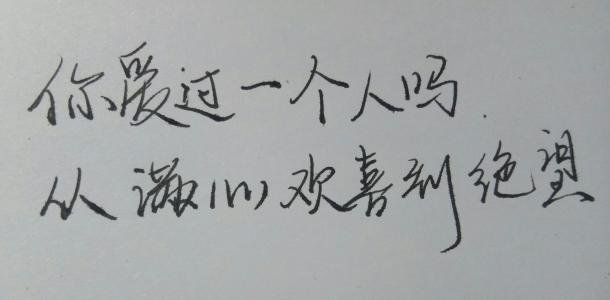 你爱过一个人吗
从满心欢喜到绝望